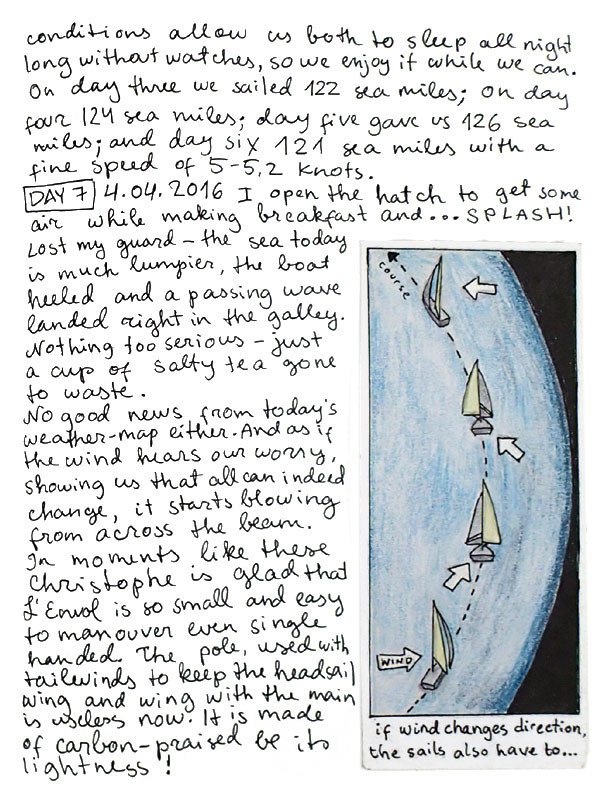 conditions allow us both to sleep all night
long without watches, so we enjoy it while we can.
On day three we sailed 122 sea miles; on day
four 124 sea miles; day five gave us 126 sea
miles; and day six 121 sea miles with a
fine speed of 5-5,2 knots.
DAY 7 4.04.2016 I open the hatch to get some
air while making breakfast and... SPLASH!
Lost my guard - the sea today
is much lumpier, the boat
heeled and a passing wave
landed right in the galley.
Nothing too serious - just
a cup of salty tea gone
to waste.
No good news from today's
weather-map either. And as if
the wind hears our worry,
showing us that all can indeed
change, it starts blowing
from across the beam.
In moments like these
Christophe is glad that
L'Envol is so small and easy
to manouver even single
handed. The pole, used with
tailwinds to keep the headsail
wing and wing with the main
is useless now. It is made
of carbon-praised be its
lightness!
course
WIND
if wind changes direction,
the sails also have to...